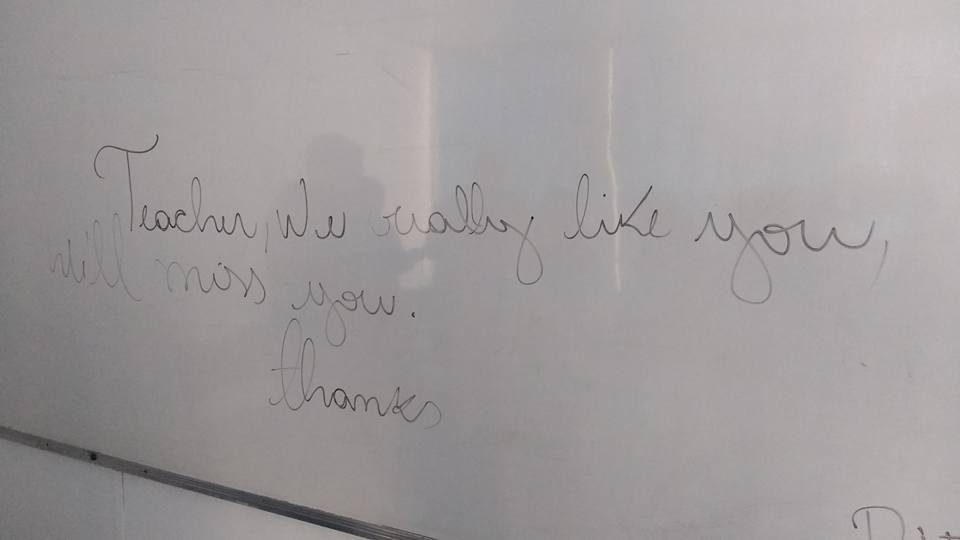 Teacher, We really like you,
will miss you.
thanks